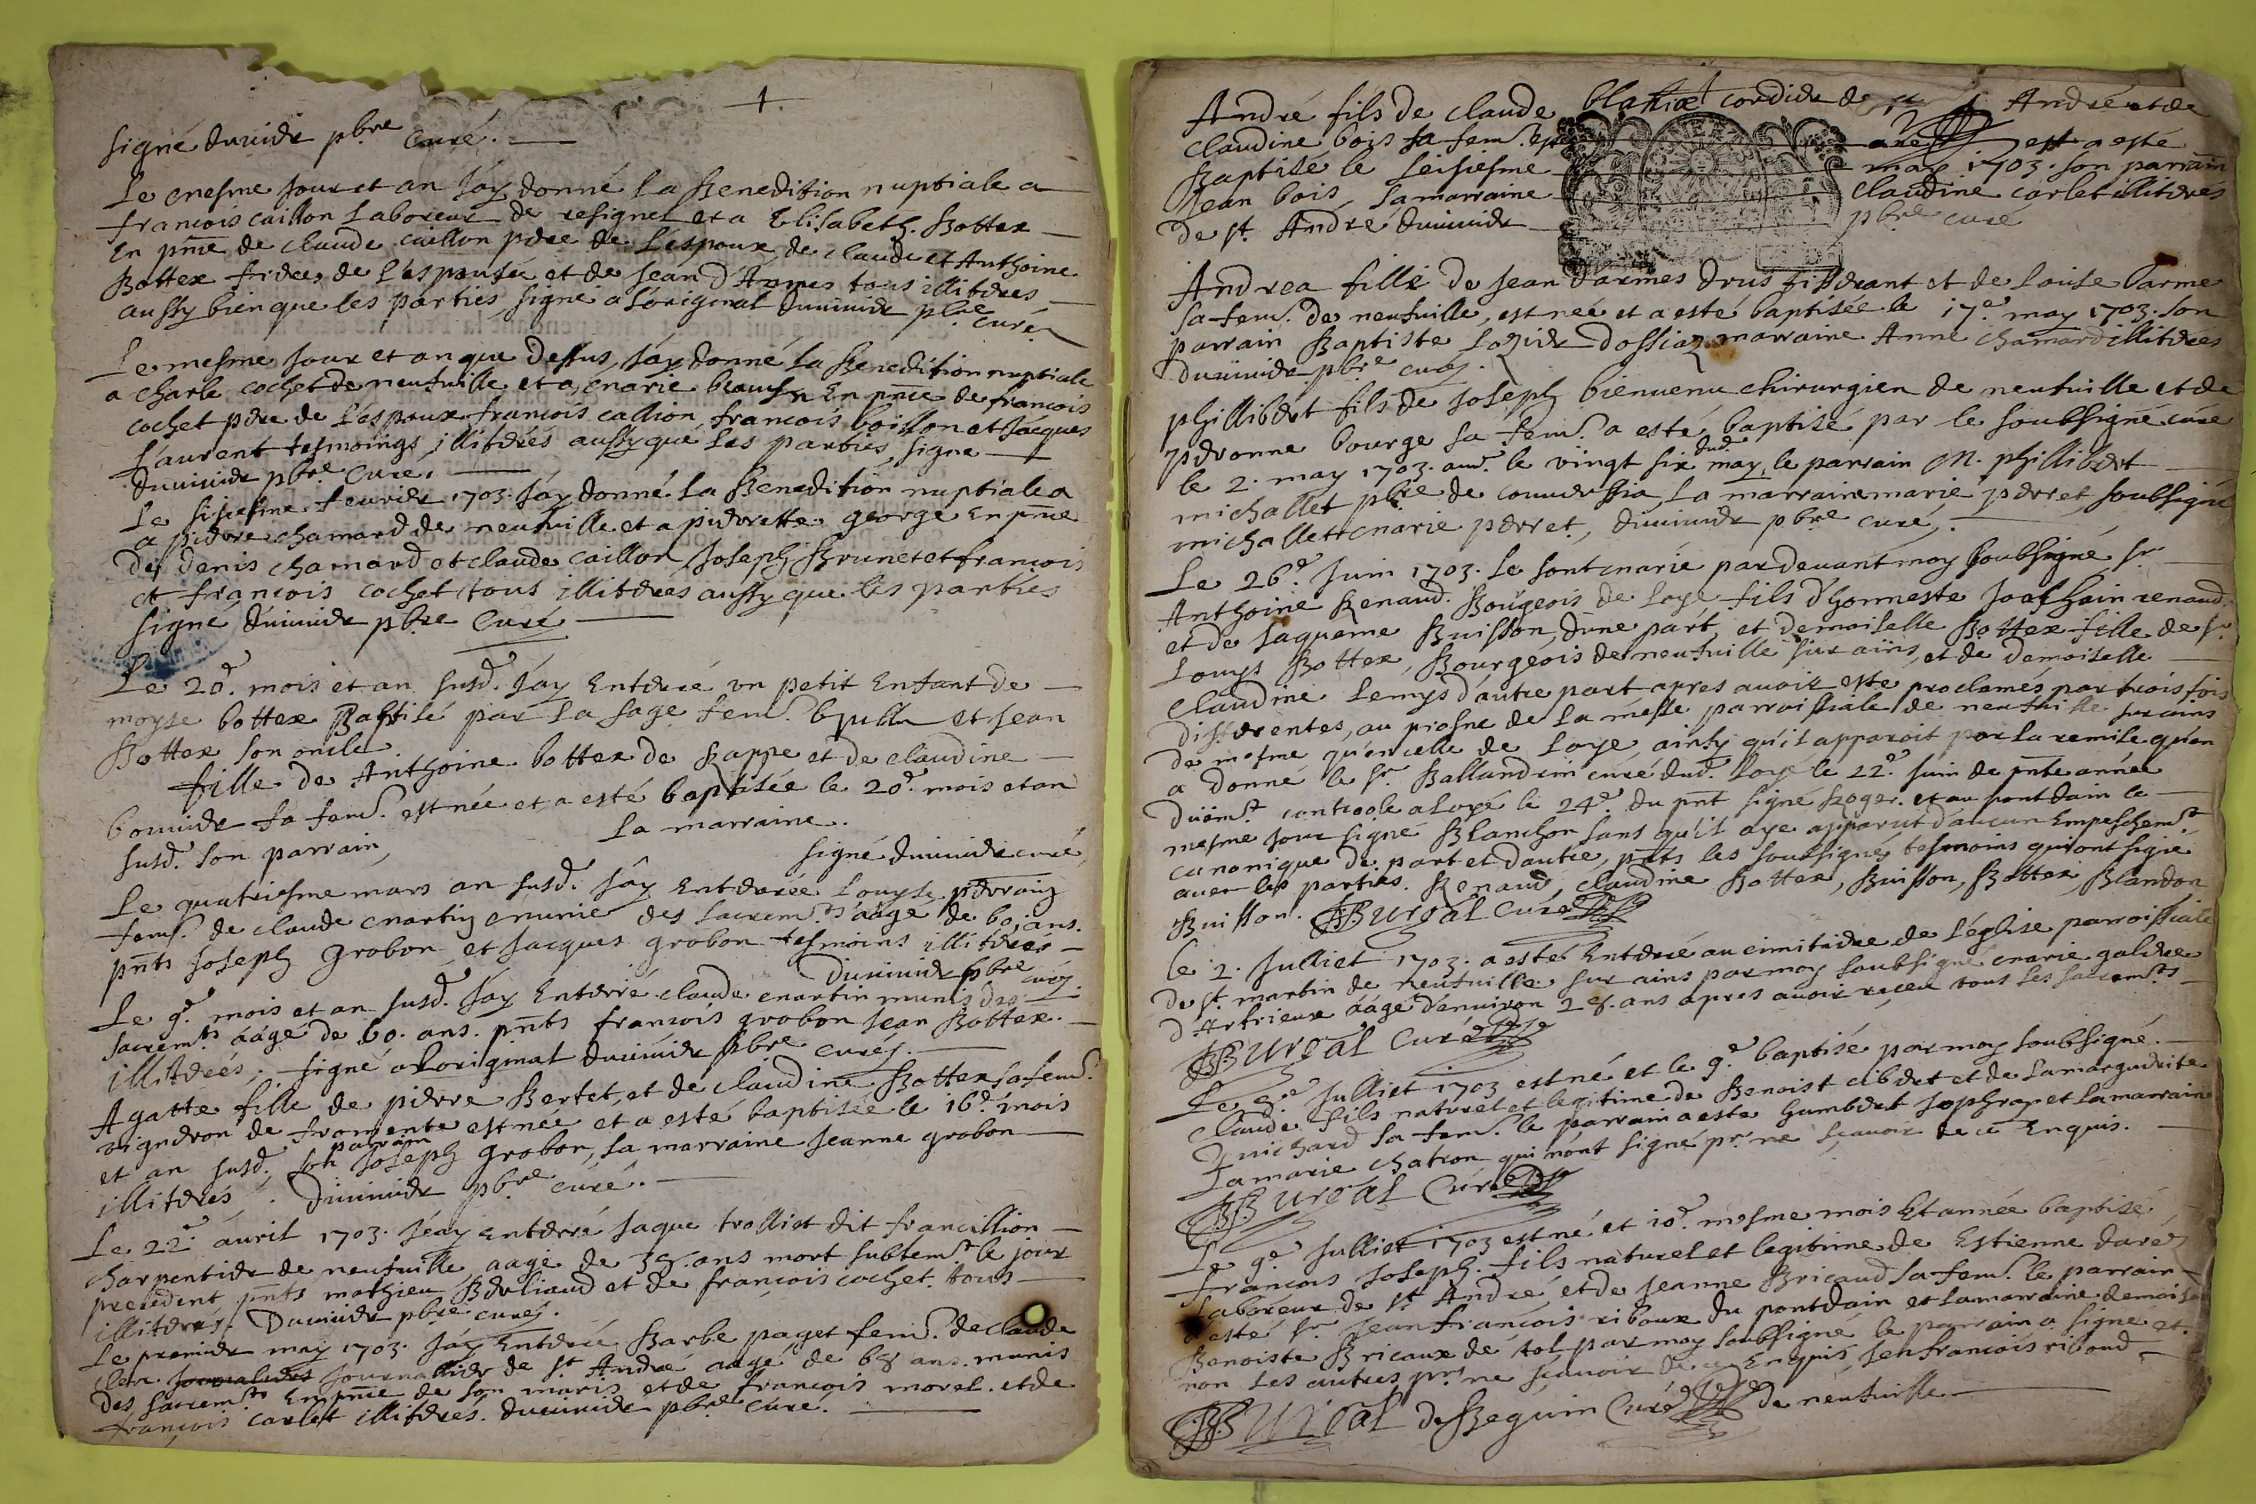 1.
signé duvivier pbre curé.
Le mesme jour et an j'ay donné la Benedition nuptiale a
francois caillon Laboreur de resignel et a Elisabeth Bottex
En pnce de claude caillon pere de L'espoux de claude et Anthoine
Bottex freres de L'espousée et de Jean d'Armes tous illiteres
aussy bien que les parties, signé a l'original duvivier pbre curé
Le mesme jour et an que dessus, j'ay donné la Benedition nuptiale
a charle cochet de neufville et a marie En pnce de francois
cochet pere de L'espoux francois callion francois boillon et Jacques
Laurent tesmoings illiterés aussy que les parties, signé
duvivier pbre curé.
Le sisiesme feuvrier 1703. j'ay donné la Benedition nuptiale a
a pierre chamard de neufville et a pierrette george En pnce
de denis chamard et claude caillon Joseph Brunet et francois
et francois cochet tous illiterés aussy que les parties
signé duvivier pbre Curé
Le 20e. mois et an susd. j'ay Enterré un petit Enfant de
moyse bottex Baptisé par la sage fem. et Jean
Bottex son oncle.
fille de Anthoine bottex de Rappe et de claudine
bouvier sa fem. est née et a esté baptisée le 20e. mois et an
susd. son parrain, La marraine.
signé duvivier curé,
Le quatriesme mars an susd. j'ay Enterrée Louyse perrain
fem. de claude martin munie des sacrem.ts aàgé de 60 ans.
pnts Joseph grobon et Jacques grobon tesmoins illiteres
duvivier pbre curé.
Le 9e. mois et an susd. j'ay Enterré claude martin munis des
sacrem.ts aàgé de 60. ans. pnts francois grobon Jean Bottex.
illiterés, signé a l'original duvivier pbre curé.
Agatte fille de pierre Bertet, et de claudine Bottex sa fem.
vigneron de fromente est née et a esté baptisée le 16e. mois
et an susd. son parrain Joseph grobon, la marraine Jeanne grobon
illiterés, duvivier pbre curé.
Le 22e. avril 1703. j'ay Enterré Jaque trolliet dit francillion
charpentier de neufville aagé de 35. ans mort subitem.t le jour
precedent pnts mathieu Berliaud et de francois cochet. tous
illiterés. Duvivier pbre curé.
Le premier may 1703. j'ay Enterré Barbe paget fem. de claude
journallier de st. André aagé de 68 ans. munis
des sacrem.ts En pnce de son maris et de francois morel. et de
francois carlet illiterés. duvivier pbre Curé.
André fils de claude cordier de st André et de
claudine bois sa fem. est a esté
Baptisé le seisiesme may 1703. son parrain
Jean bois, la marraine claudine carlet illiteres
de st. André duvivier pbre curé
Andrea fille de Jean d'armes drus fisserant et de Louise Carme
sa fem. de neufville, est née et a este baptisée le 17e. may 1703. son
parrain Baptiste Lozier Dossiaz marraine Anne chamard illiterés
duvivier pbre curé.
phillibert fils de Joseph bienvenu chirurgien de neufville et de
peronne bourge sa fem. a esté baptisé par le soubsigné curé
le 2. may 1703. le vingt six dud. may, le parrain M. phillibert
michallet pbre de couverssia, la marraine marie perret, soubsigné
michallet marie perret, duvivier pbre curé,.
Le 26e. Juin 1703. se sont marié pardevant moy soubsigné, sr.
Anthoine Renaud. Bourgeois de Loye fils d'honneste renaud,
et de Jaqueme Buisson, dune part, et demoiselle Bottex fille de sr.
Louys Bottex, Bourgeois de neufville sur ains, et de demoiselle
Claudine Lemys d'autre part apres avoir este proclamés par trois fois
differentes, au prosne de la messe parroissiale de neufville sur ains
de mesme qu'en celle de Loye, ainsy qu'il apparoit par la remise qu'en
a donné le sr. Ballandrin curé dud. Loye le 22e. juin de pnte année
controole a Loyé le 24e. du pnt signé Roger. et au pont dain le
mesme jour signé Blanchon sans qu'il aye apparut d'aucun Empeschem.t
canonique de part et dautre, pnts les soubsignés tesmoins qui ont signé
avec les parties. Renaud, claudine Bottex, Buisson, Bottex, Blandon
Buisson. Burgal curé
Le 2. Julliet 1703. a esté Enterré au cimitiere de l'église parroissiale
de st. martin de neufville sur ains par moy soubsigné marie galdre
d'Artrieux aàgé d'environ 28. ans apres avoir receu tous les sacrem.ts
Burgal Curé
Le 7e Julliet 1703 est né et le 9e. baptisé par moy soubsigné.
claude fils naturel et legitime de Benoist cibert et de La marguerite
quichard sa fem. le parrain a este humbert Jophray et la marraine
La marie chatron qui n'ont signé pr. ne sçavoir de ce Enquis.
Burgal Curé
Le 9e. Julliet 1703 est né et 10e. mesme mois Et année baptisé,
francois Joseph. fils naturel et legitime de Estienne darés
Laboreur de st. André, et de Jeanne Bricaud sa fem. le parrain
a esté sr. Jean francois riboux du pontdain et la marraine demois.le
Benoiste Bricaux de tol par moy soubsigné le parrain a signé et.
non les autres pr. ne sçavoir de ce Enquis, Jen francois riboud
Burgal de Beguin Curé de neufville